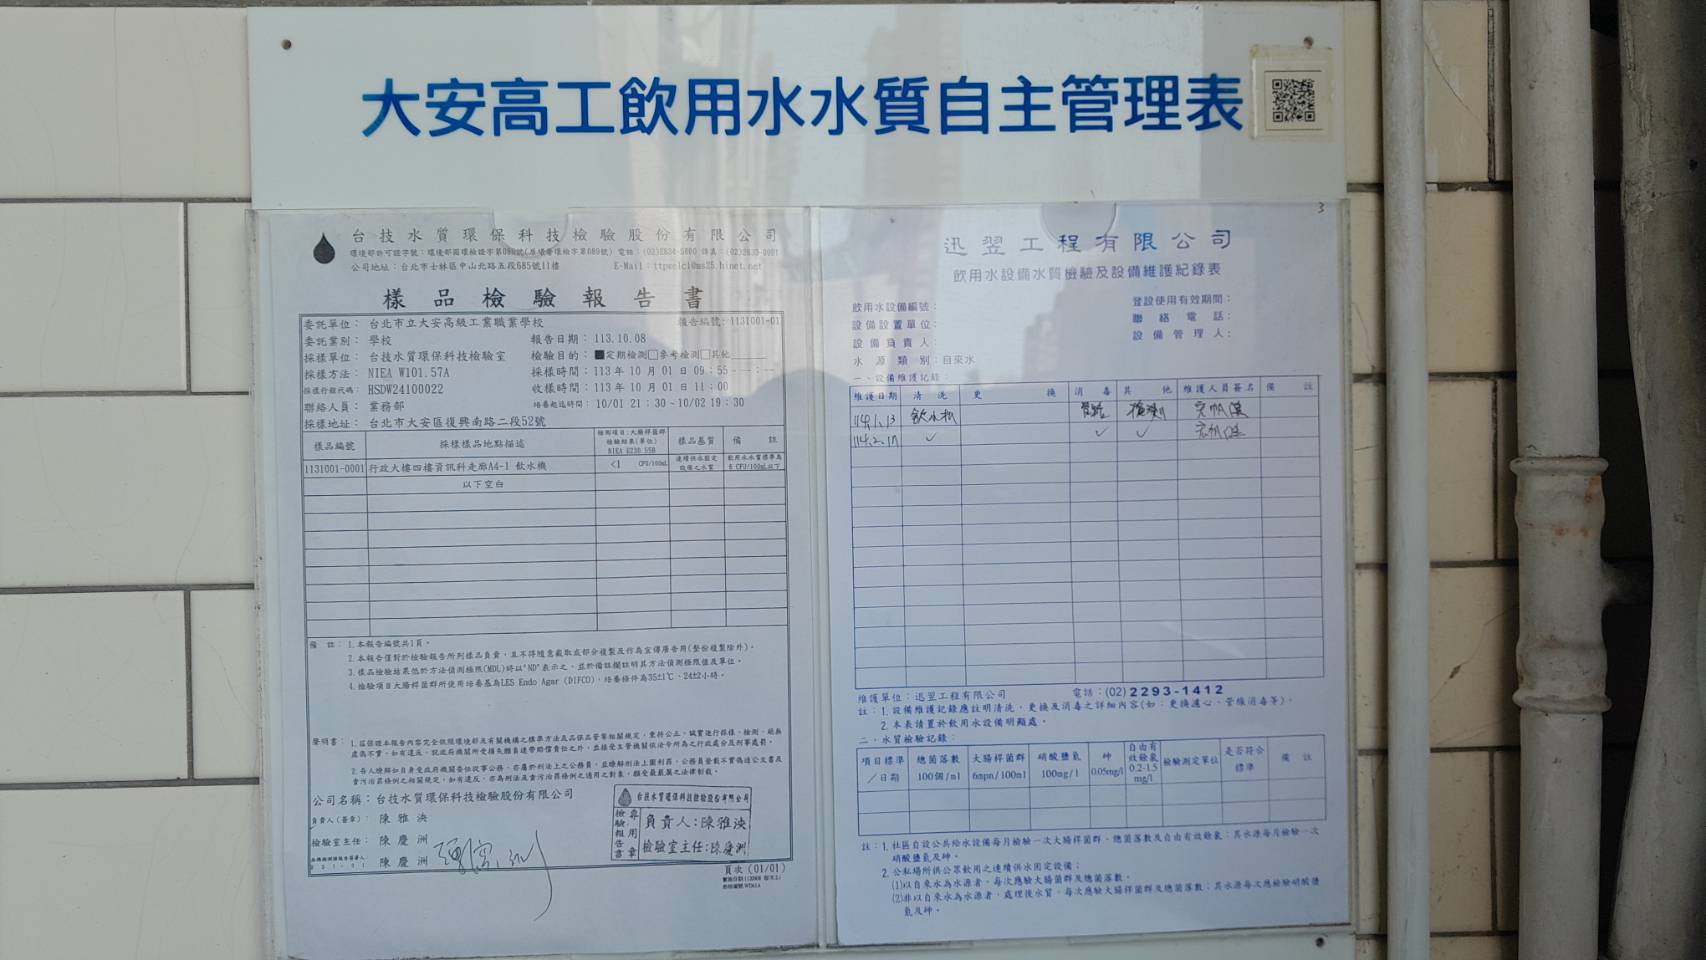 大安高工飲用水水質自主管理表
台技水質環保科技檢驗股份有限公司
公司地址：台北市士林區中山北路五段685號11樓
樣品檢驗報告書
委託單位：台北市立大安高級工業職業學校
報告編號：1131001-01
委託業別：學校
報告日期：113.10.08
採樣單位：台技水質環保科技檢驗室
檢驗目的：■定期檢測□參考檢測□其他
採樣方法：NIEA W101.57A
採樣時間：113 年 10 月 01 日 09：55
採樣行程代碼：HSDW24100022
收樣時間：113 年 10 月 01 日 11：00
聯絡人員：業務部
培養起迄時間：10/01 21：30～10/02 19：30
採樣地址：台北市大安區復興南路二段52號
樣品編號 採樣樣品地點描述 檢測項目:大腸桿菌群 檢驗結果(單位) NIEA E230.55B 樣品基質 備註
1131001-0001 行政大樓四樓資訊科走廊A4-1 飲水機 <1 CFU/100mL 連續供水固定設備之水質 飲用水水質標準為6 CFU/100mL以下
以下空白
備註：1.本報告編號共1頁。
2.本報告僅對於檢驗報告所列樣品負責，且不得隨意截取或部分複製及作為宣傳廣告用(整份複製除外)。
3.樣品檢驗結果低於方法偵測極限(MDL)時以"ND"表示之，並於備註欄註明其方法偵測極限值及單位。
4.檢驗項目大腸桿菌群所使用培養基為LES Endo Agar (DIFCO)，培養條件為35±1℃、24±2小時。
聲明書：1.茲保證本報告內容完全依照環境部及有關機構之標準方法及品保品管等相關規定，秉持公正、誠實進行採樣、檢測。絕無
虛偽不實，如有違反，就政府機關所受損失願負連帶賠償責任之外，並接受主管機關依法令所為之行政處分及刑事處罰。
2.吾人瞭解如自身受政府機關委任從事公務，亦屬於刑法上之公務員，並瞭解刑法上圖利罪、公務員登載不實偽造公文書及
貪污治罪條例之相關規定，如有違反，亦為刑法及貪污治罪條例之適用之對象，願受最嚴厲之法律制裁。
公司名稱：台技水質環保科技檢驗股份有限公司
負責人(簽章)：陳雅泱
檢驗室主任：陳慶洲
陳慶洲
台技水質環保科技檢驗股份有限公司
檢驗報告書專用章
負責人：陳雅泱
檢驗室主任：陳慶洲
頁次(01/01)
3
迅翌工程有限公司
飲用水設備水質檢驗及設備維護紀錄表
飲用水設備編號：
登設使用有效期間：
設備設置單位：
聯絡電話：
設備負責人：
設備管理人：
水源類別：自來水
一、設備維護記錄：
維護日期 清洗 更換 消毒 其他 維護人員簽名 備註
114.1.13 飲水機 管路
114.2.17 ✓ ✓ ✓
維護單位：迅翌工程有限公司 電話：(02)2293-1412
註：1.設備維護記錄應註明清洗，更換及消毒之詳細內容(如：更換濾心、管線消毒等)。
2.本表請置於飲用水設備明顯處。
二、水質檢驗記錄：
項目標準／日期 總菌落數 100個/ml 大腸桿菌群 6mpn/100ml 硝酸鹽氮 100mg/l 砷 0.05mg/l 自由有效餘氯 0.2-1.5 mg/l 檢驗測定單位 是否符合標準 備註
註：1.社區自設公共給水設備每月檢驗一次大腸桿菌群、總菌落數及自由有效餘氯；其水源每月檢驗一次
硝酸鹽氮及砷。
2.公私場所供公眾飲用之連續供水固定設備；
(1)以自來水為水源者，每次應驗大腸桿菌群及總菌落數。
(2)非以自來水為水源者，處理後水質，每次應驗大腸桿菌群及總菌落數；其水源每次應檢驗硝酸鹽
氮及砷。